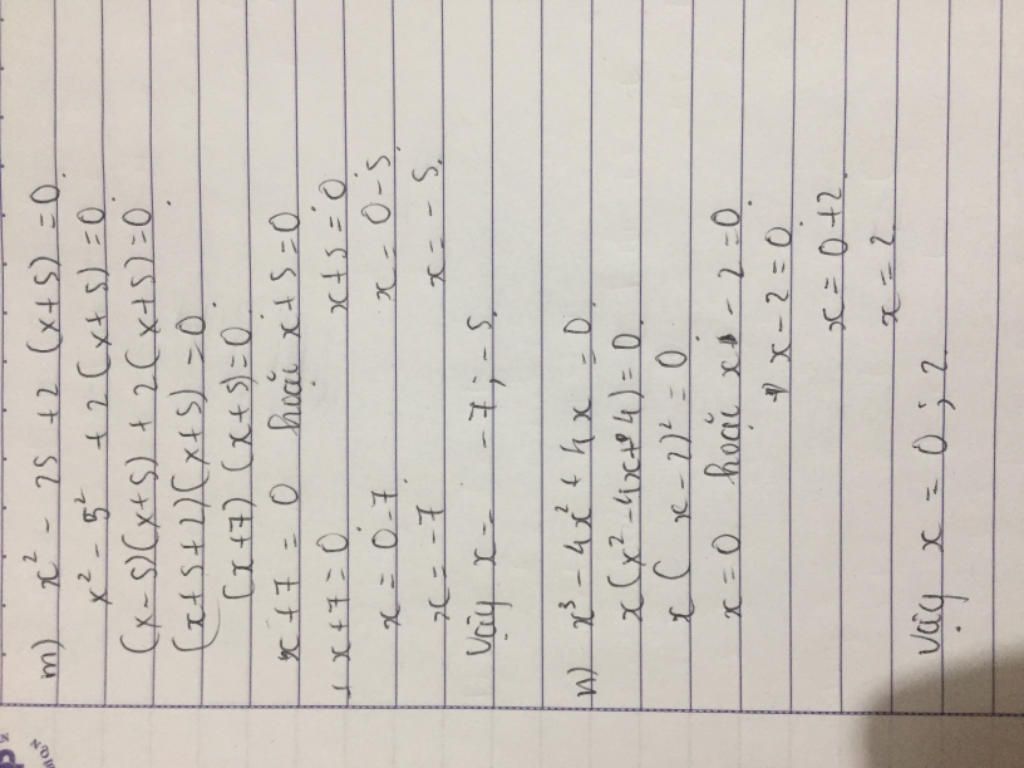 m) x² - 25 + 2 (x+5) = 0.
x² - 5² + 2 (x+5) = 0.
(x-5)(x+5) + 2(x+5) = 0
(x+5+2)(x+5) = 0.
(x+7)(x+5)=0.
x+7 = 0 hoặc x+5=0
+ x+7=0 x+5=0
x = 0-7 x = 0-5.
x = -7. x = -5.
Vậy x = -7; -5.
n) x³ - 4x² + 4x = 0.
x(x²-4x+4)=0.
x (x-2)² = 0
x = 0 hoặc x - 2 = 0.
x - 2 = 0
x = 0 + 2.
x = 2
Vậy x = 0; 2.